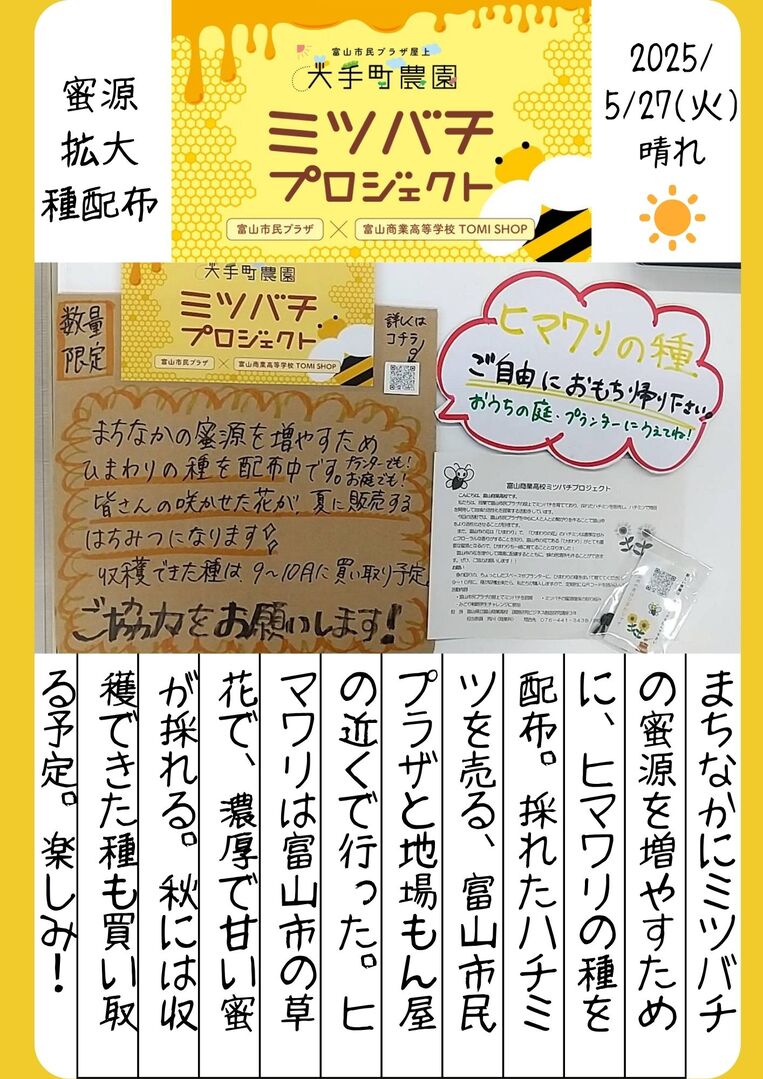 蜜源
拡大
種配布
富山市民プラザ屋上
大手町農園
ミツバチ
プロジェクト
富山市民プラザ × 富山商業高等学校 TOMI SHOP
2025/
5/27(火)
晴れ
数量
限定
大手町農園
ミツバチ
プロジェクト
富山市民プラザ × 富山商業高等学校 TOMI SHOP
詳しくは
コチラ
まちなかの蜜源を増やすため
ひまわりの種を配布中です。プランターでも!お庭でも!
皆さんの咲かせた花が、夏に販売する
はちみつになります
収穫できた種は9〜10月に買い取り予定。
ご協力をお願いします!
ヒマワリの種
ご自由におもち帰り下さい。
おうちの庭・プランターにうえてね!
富山商業高校ミツバチプロジェクト
こんにちは、富山商業高校です。
まちなかにミツバチ
の蜜源を増やすため
に、ヒマワリの種を
配布。採れたハチミ
ツを売る、富山市民
プラザと地場もん屋
の近くで行った。ヒ
マワリは富山市の草
花で、濃厚で甘い蜜
が採れる。秋には収
穫できた種も買い取
る予定。楽しみ!